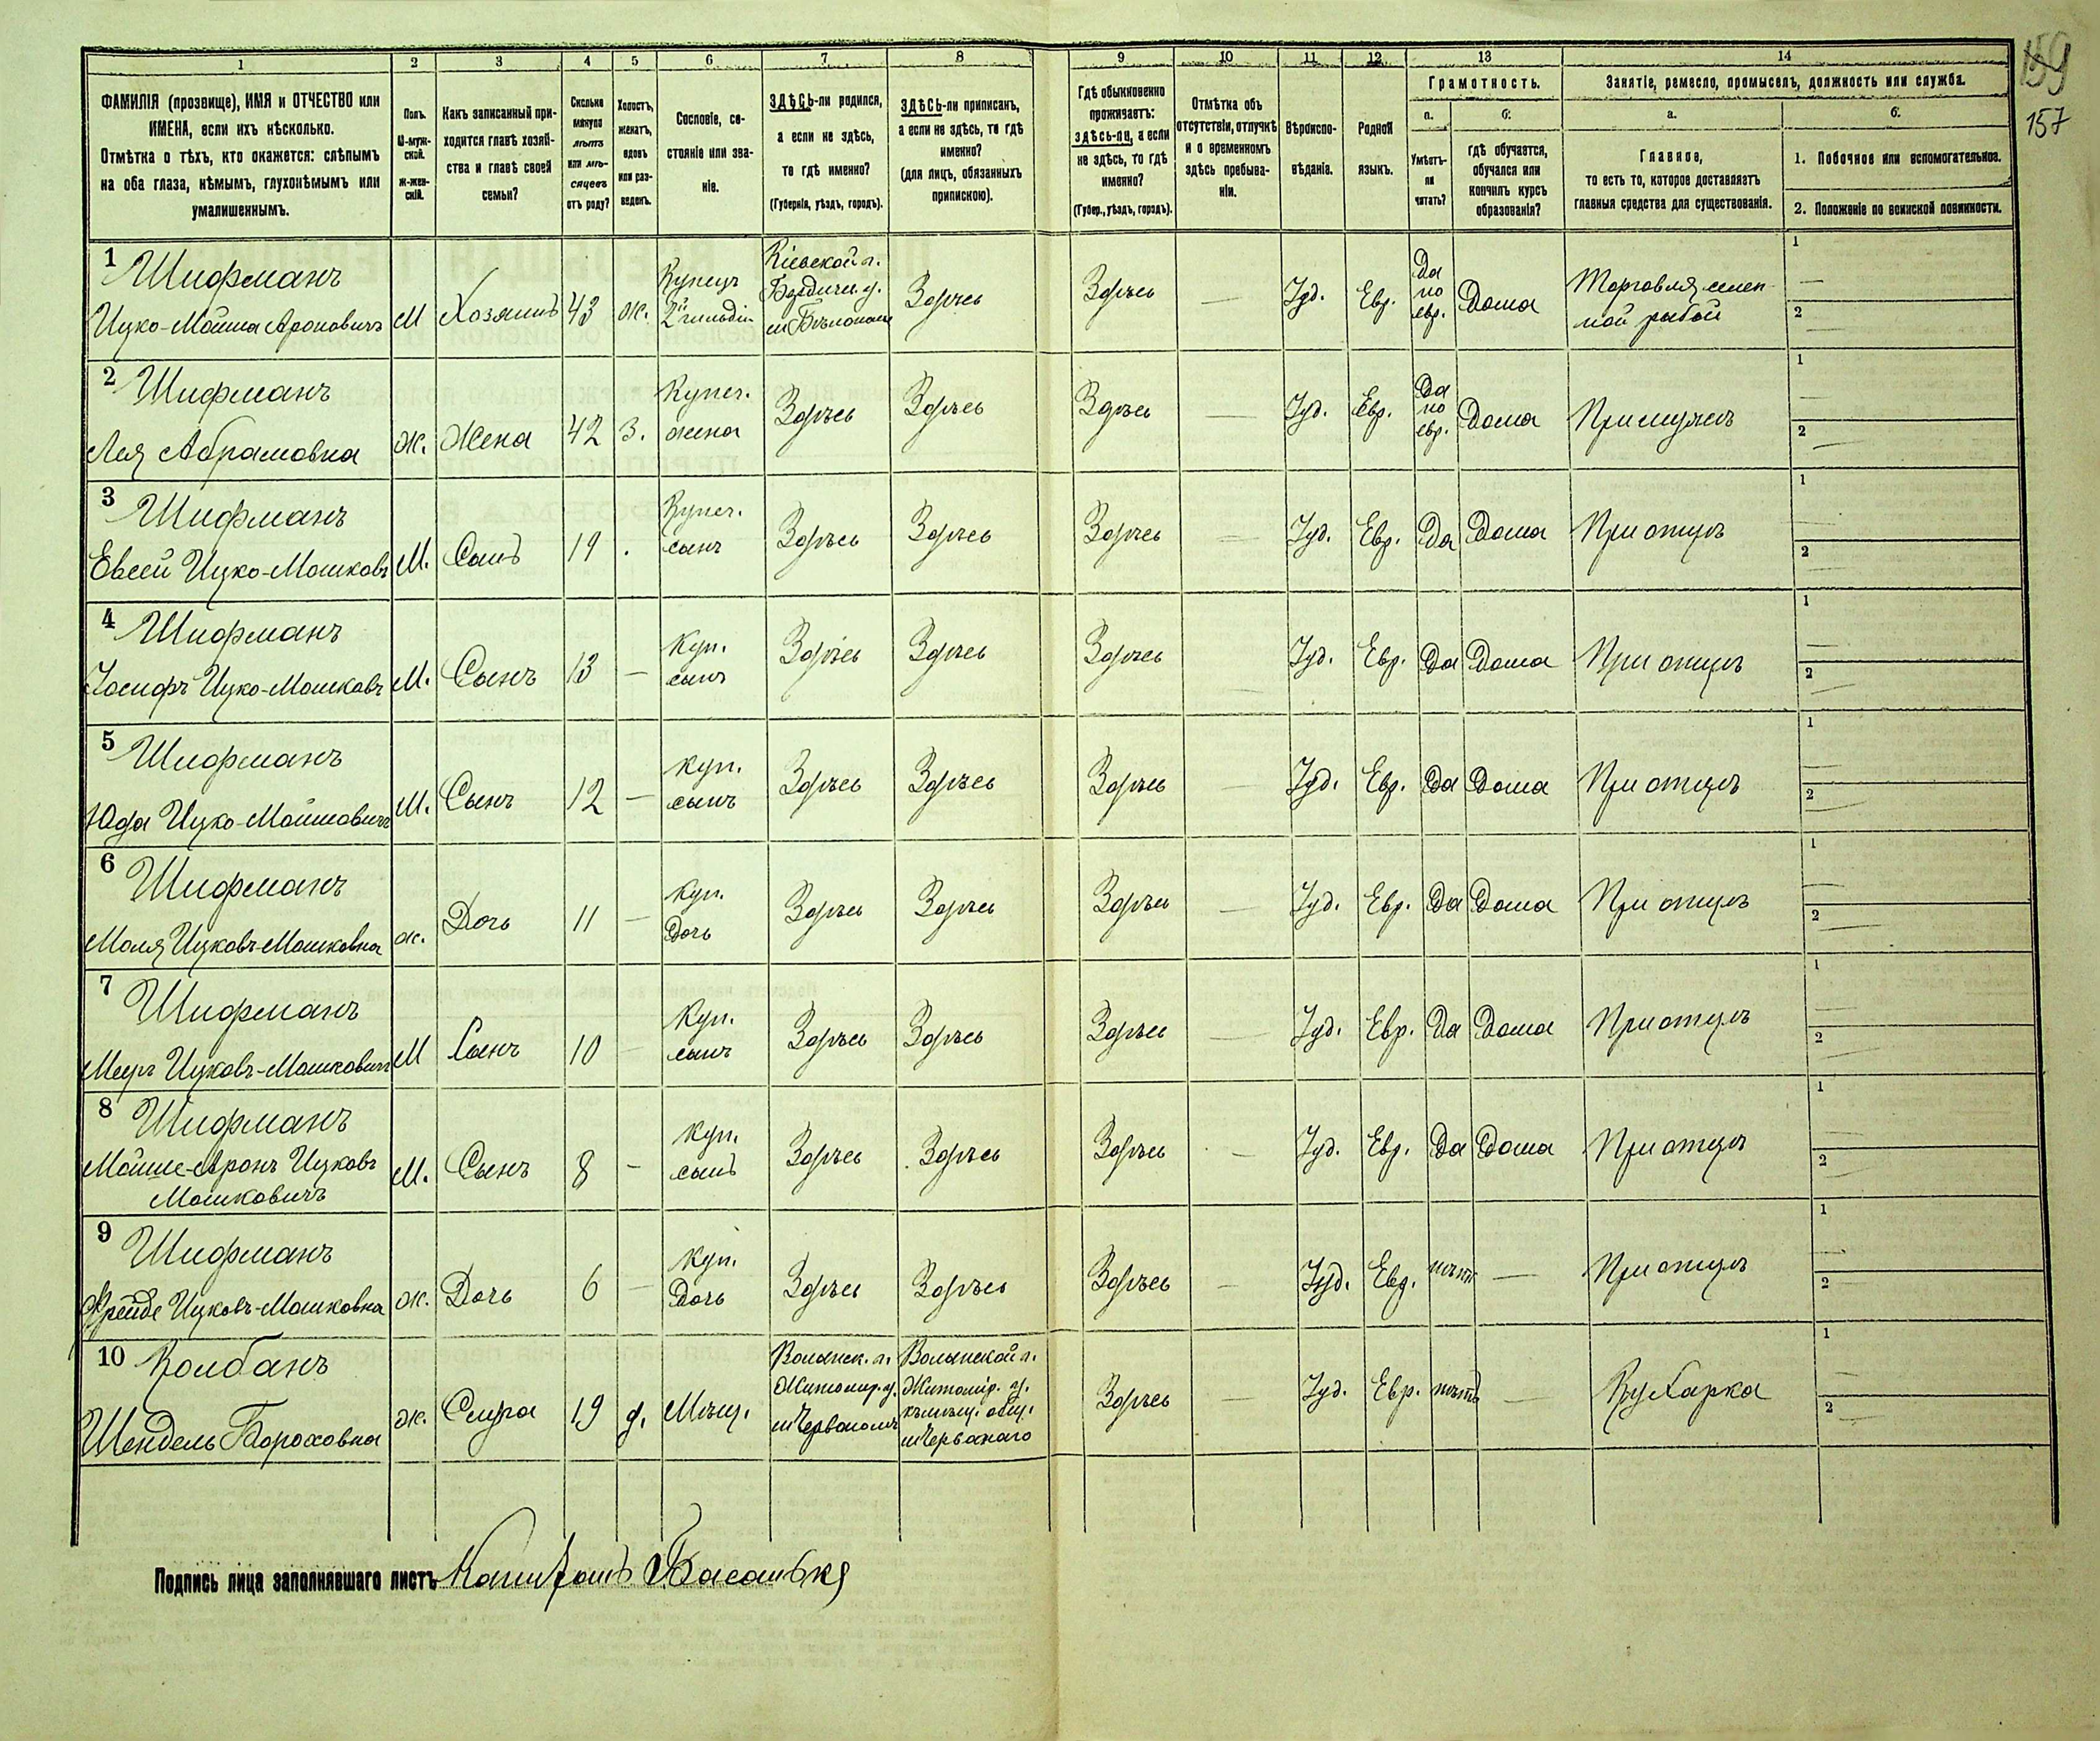 159
157
1 2 3 4 5 6 7 8 9 10 11 12 13 14
ФАМИЛІЯ (прозвище), ИМЯ и ОТЧЕСТВО или
ИМЕНА, если ихъ нѣсколько.
Отмѣтка о тѣхъ, кто окажется: слѣпымъ
на оба глаза, нѣмымъ, глухонѣмымъ или
умалишеннымъ.
Полъ.
М-муж-
ской.
ж-жен-
скій.
Какъ записанный при-
ходится главѣ хозяй-
ства и главѣ своей
семьи?
Сколько
минуло
лѣтъ
или мѣ-
сяцевъ
отъ роду?
Холостъ,
женатъ,
вдовъ
или раз-
веденъ.
Сословіе, со-
стояніе или зва-
ніе.
ЗДѢСЬ-ли родился,
а если не здѣсь,
то гдѣ именно?
(Губернія, уѣздъ, городъ).
ЗДѢСЬ-ли приписанъ,
а если не здѣсь, то гдѣ
именно?
(для лицъ, обязанныхъ
припискою).
Гдѣ обыкновенно
проживаетъ:
здѣсь-ли, а если
не здѣсь, то гдѣ
именно?
(Губер., уѣздъ, городъ).
Отмѣтка объ
отсутствіи, отлучкѣ
и о временномъ
здѣсь пребыва-
ніи.
Вѣроиспо-
вѣданіе.
Родной
языкъ.
Грамотность.
а.
Умѣетъ-
ли
читать?
б.
гдѣ обучается,
обучался или
кончилъ курсъ
образованія?
Занятіе, ремесло, промыселъ, должность или служба.
а.
Главное,
то есть то, которое доставляетъ
главныя средства для существованія.
б.
1. Побочное или вспомогательное.
2. Положеніе по воинской повинности.
1 Шифманъ
Ицко-Мойша Ароновичъ
М
Хозяинъ
43
ж.
Купецъ
2й гильдіи
Кіевской г.
Бердичи. у.
м Бѣлополье
Здѣсь
Здѣсь
—
Іуд.
Евр.
Да
по
евр.
Дома
Торговля селен-
ной рыбой
1 —
2 —
2 Шифманъ
Лея Абрамовна
ж.
Жена
42
З.
Купеч.
жена
Здѣсь
Здѣсь
Здѣсь
—
Іуд.
Евр.
Да
по
евр.
Дома
При мужѣ
1 —
2 —
3 Шифманъ
Евсей Ицко-Мошковъ
М.
Сынъ
19
.
Купеч.
сынъ
Здѣсь
Здѣсь
Здѣсь
—
Іуд.
Евр.
Да
Дома
При отцѣ
1 —
2 —
4 Шифманъ
Іосифъ Ицко-Мошковъ
М.
Сынъ
13
—
Куп.
сынъ
Здѣсь
Здѣсь
Здѣсь
—
Іуд.
Евр.
Да
Дома
При отцѣ
1 —
2 —
5 Шифманъ
Юда Ицко-Мойшовичъ
М.
Сынъ
12
—
куп.
сынъ
Здѣсь
Здѣсь
Здѣсь
—
Іуд.
Евр.
Да
Дома
При отцѣ
1 —
2 —
6 Шифманъ
Маля Ицковъ-Мошковна
ж.
Дочь
11
—
куп.
Дочь
Здѣсь
Здѣсь
Здѣсь
—
Іуд.
Евр.
Да
Дома
При отцѣ
1 —
2 —
7 Шифманъ
Мееръ Ицковъ-Мошковичъ
М
Сынъ
10
—
Куп.
сынъ
Здѣсь
Здѣсь
Здѣсь
—
Іуд.
Евр.
Да
Дома
При отцѣ
1 —
2 —
8 Шифманъ
Мойше-Аронъ Ицковъ
Мошковичъ
М.
Сынъ
8
—
куп.
сынъ
Здѣсь
Здѣсь
Здѣсь
—
Іуд.
Евр.
Да
Дома
При отцѣ
1 —
2 —
9 Шифманъ
Фрейде Ицковъ-Мошковна
ж.
Дочь
6
—
Куп.
Дочь
Здѣсь
Здѣсь
Здѣсь
—
Іуд.
Евр.
нѣтъ
—
При отцѣ
1 —
2 —
10 Колбанъ
Шендель Бороховна
ж.
Слуга
19
д.
Мѣщ.
Волынск. г.
Житомир. у.
м Червоном
Волынской г.
Житомір. у.
къ мѣщ. общ.
м Червонаго
Здѣсь
—
Іуд.
Евр.
нѣтъ
—
Кухарка
1 —
2 —
Подпись лица заполнявшаго листъ